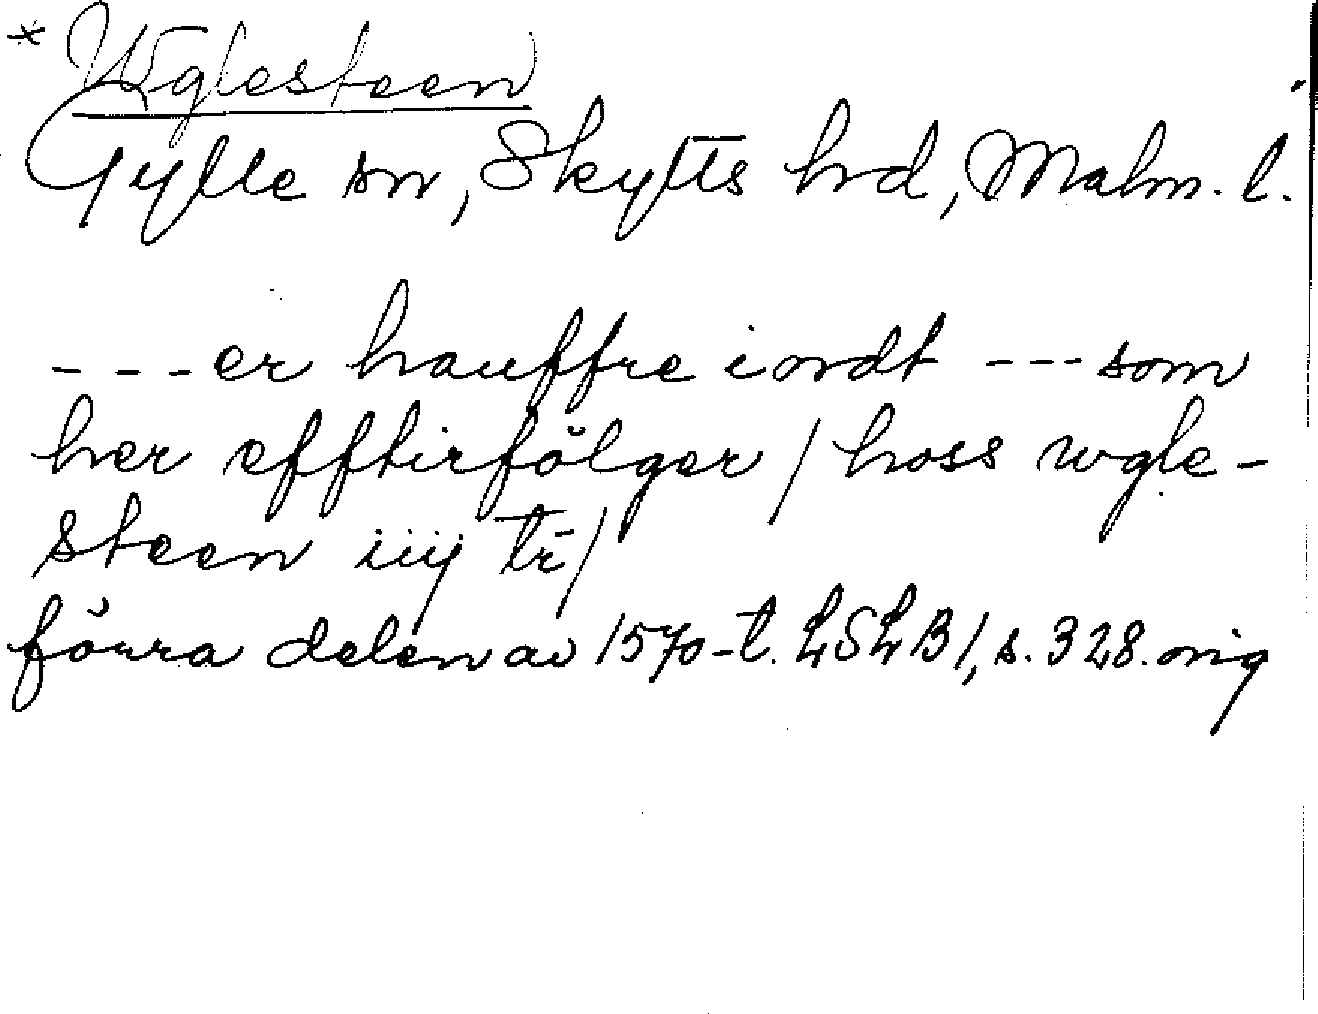 * Wglesteen
Gylle sn, Skytts hrd, Malm. l.
--- er hauffre iordt --- som
her efftirfölger / hoss wgle-
steen iiij tr̄ /
förra delen av 1570-t. LSLB1, s. 328. orig